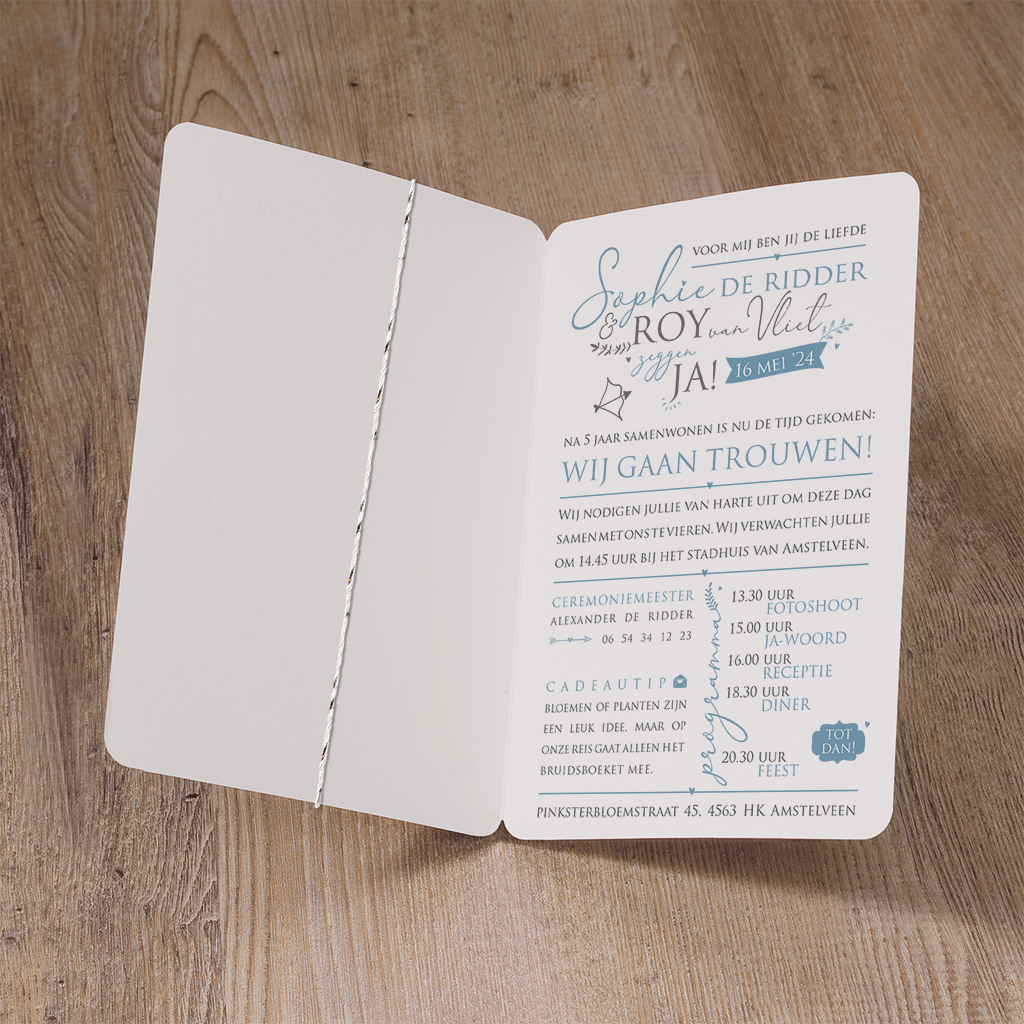 VOOR MIJ BEN JIJ DE LIEFDE
Sophie DE RIDDER
& ROY van Vliet
zeggen
JA! 16 MEI '24
NA 5 JAAR SAMENWONEN IS NU DE TIJD GEKOMEN:
WIJ GAAN TROUWEN!
WIJ NODIGEN JULLIE VAN HARTE UIT OM DEZE DAG
SAMEN MET ONS TE VIEREN. WIJ VERWACHTEN JULLIE
OM 14.45 UUR BIJ HET STADHUIS VAN AMSTELVEEN.
CEREMONIEMEESTER
ALEXANDER DE RIDDER
06 54 34 12 23
CADEAUTIP
BLOEMEN OF PLANTEN ZIJN
EEN LEUK IDEE, MAAR OP
ONZE REIS GAAT ALLEEN HET
BRUIDSBOEKET MEE.
programma
13.30 UUR
FOTOSHOOT
15.00 UUR
JA-WOORD
16.00 UUR
RECEPTIE
18.30 UUR
DINER
20.30 UUR
FEEST
TOT
DAN!
PINKSTERBLOEMSTRAAT 45, 4563 HK AMSTELVEEN